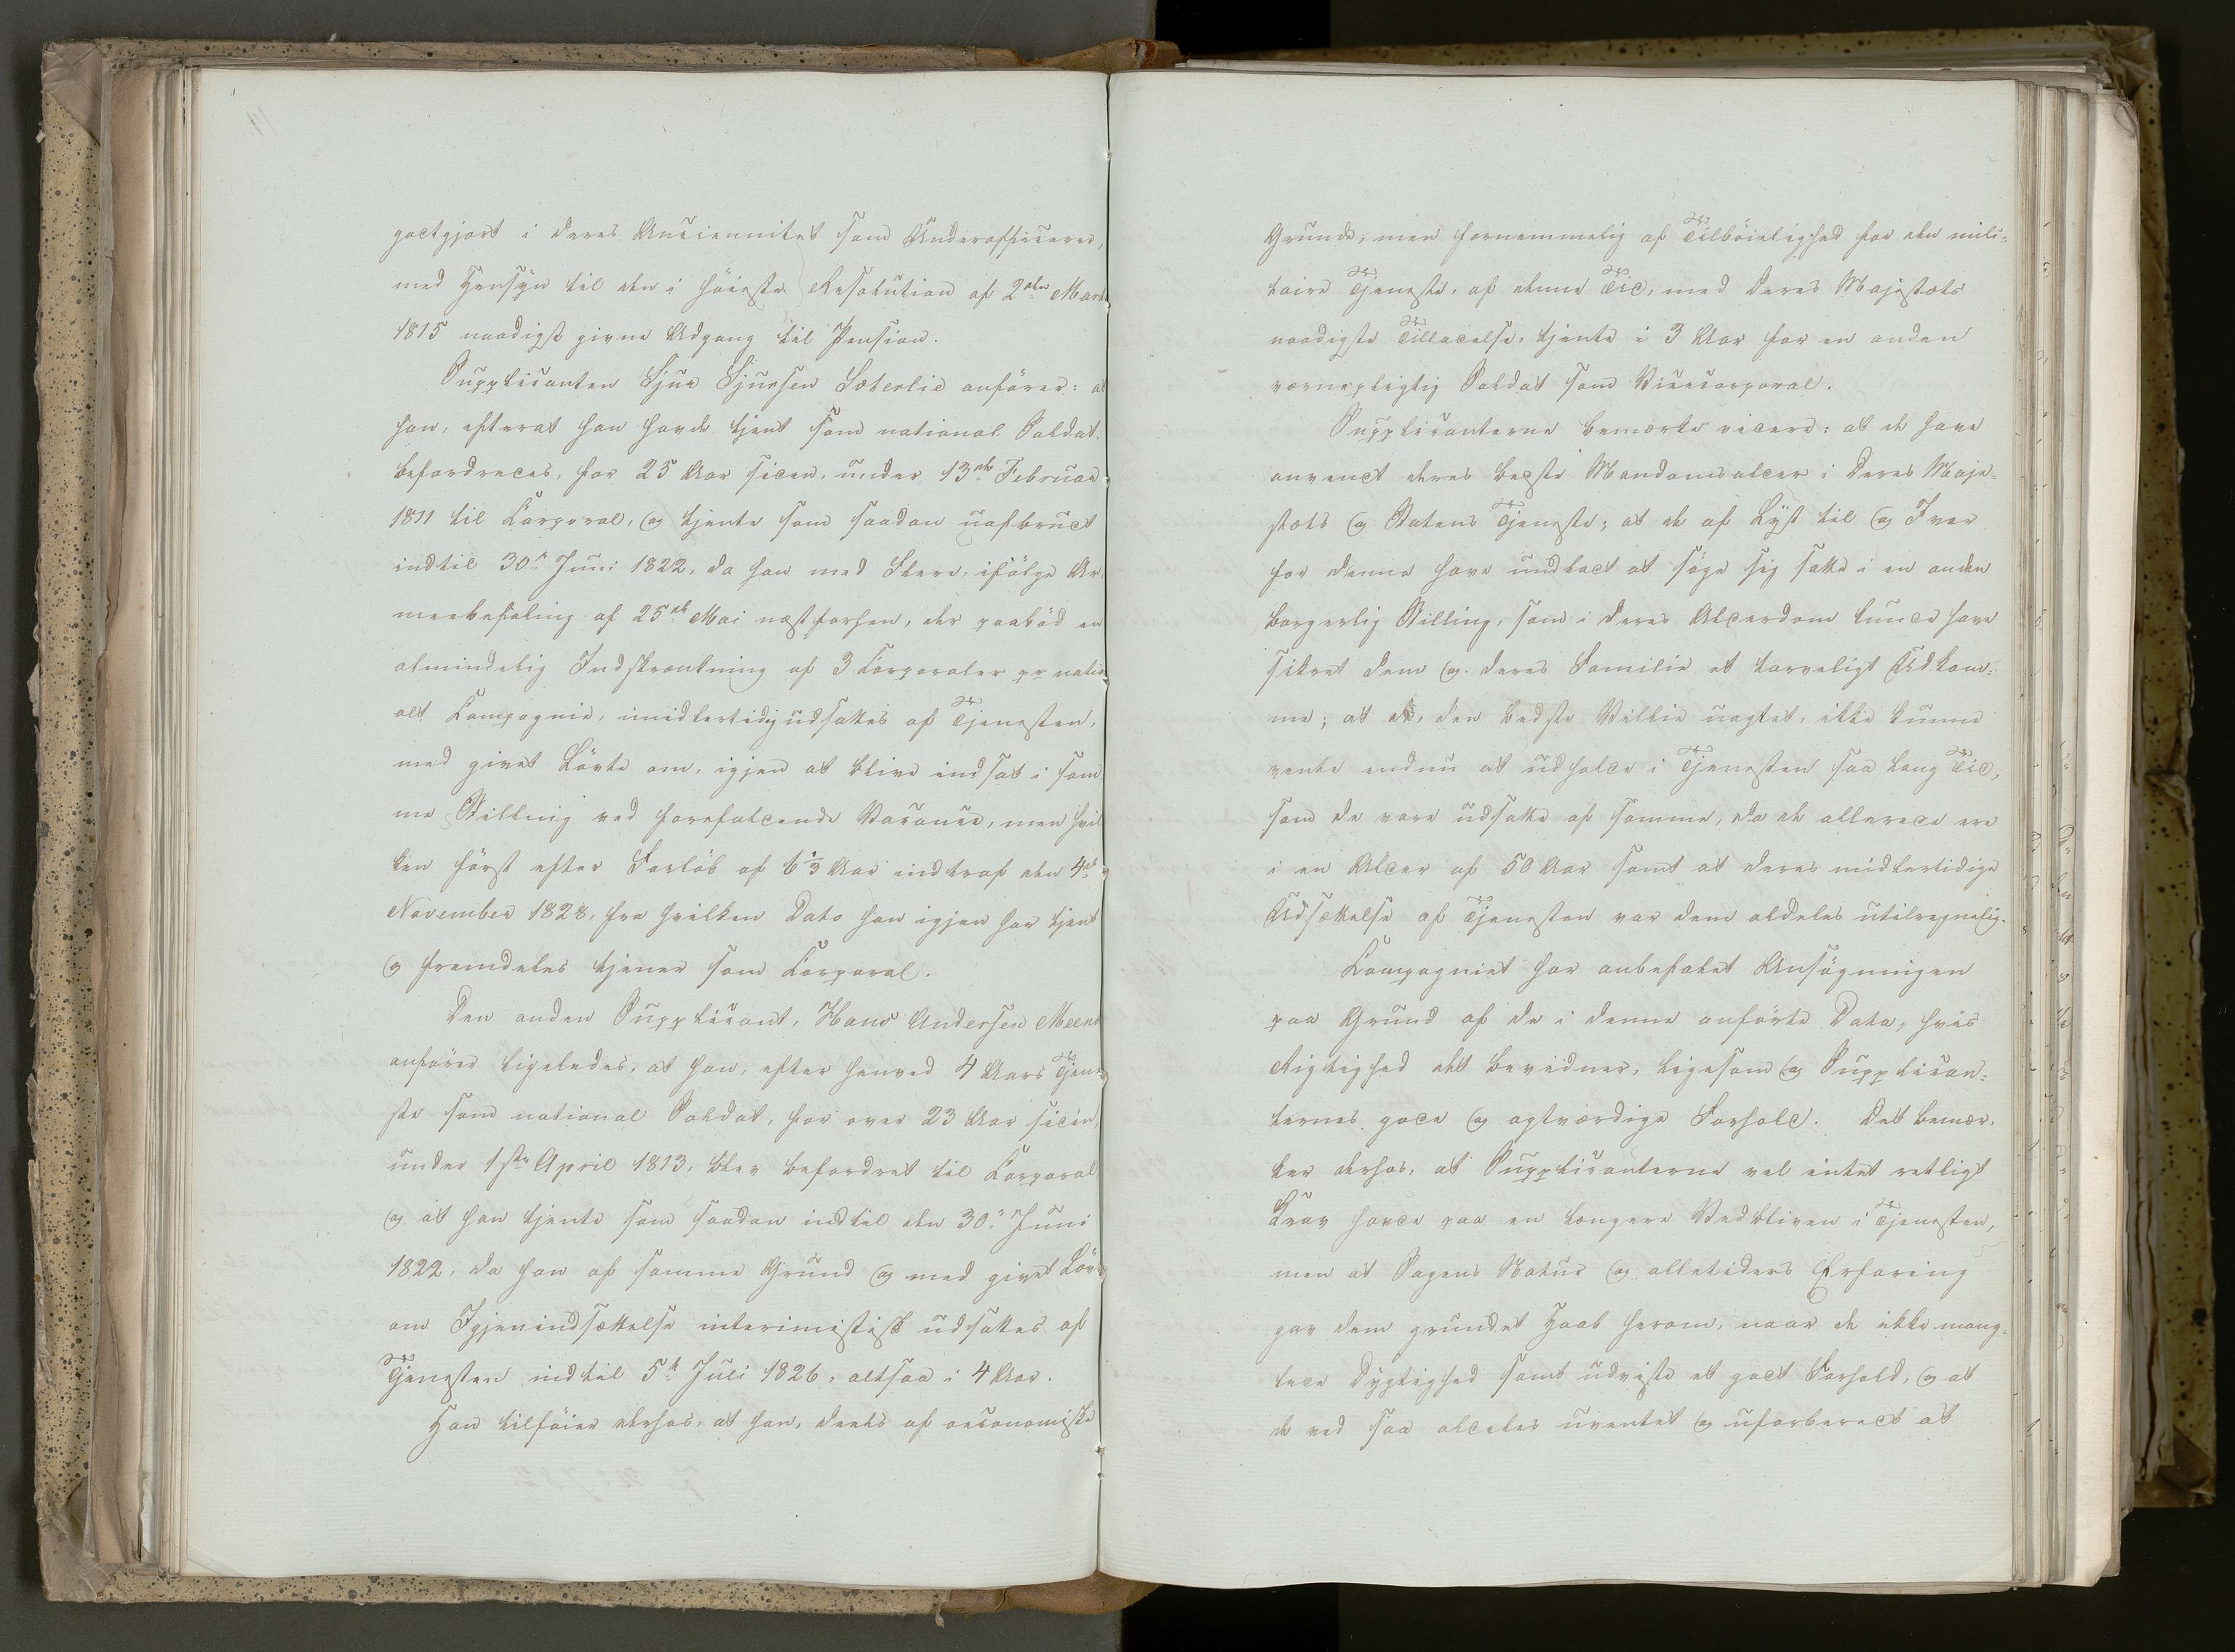 godtgjort i deres Anciennitet som Underofficerer,
med Hensyn til den i høieste Resolution af 2den Mart
1815 naadigst givne Adgang til Pension.
Supplicanten Sjur Sjursen Sæterlie anfører: at
han, efterat han havde tjent som national Soldat,
befordredes, for 25 Aar siden, under 13de Februar
1811 til Corporal, og tjente som saadan uafbrudt
indtil 30te Juni 1822, da han med Flere, ifølge Ar-
meebefaling af 25de Mai næstforhen, der paabød en
almindelig Indskrænkning af 3 Corporaler pr natio-
alt Compagnie, imidlertidig udsattes af Tjenesten,
med givet Løvte om, igjen at blive indsat i sam
me Stilling ved forefaldende Vacance, men hvil
ken først efter Forløb af 6 1/3 Aar indtraf den 4de
November 1828, fra hvilken Dato han igjen har tjent
og fremdeles tjener som Corporal.
Den anden Supplicant, Hans Andersen Meen
anfører ligeledes, at han, efter henved 4 Aars Tjene-
ste som national Soldat, for over 23 Aar siden,
under 1ste April 1813, blev befordret til Corporal,
og at han tjente som saadan indtil den 30te Juni
1822, da han af samme Grund og med givet Løvte
om Igjenindsættelse interimistisk udsattes af
Tjenesten indtil 5te Juli 1826, altsaa i 4 Aar.
Han tilføier derhos, at han, deels af oeconomiske
Grunde, men fornemmelig af Tilbøielighed for den mili-
taire Tjeneste, af denne Tid, med Deres Majestæts
naadigste Tilladelse, tjente i 3 Aar for en anden
værnepligtig Soldat som Vicecorporal.
Supplicanterne bemærke videre: at de have
anvendt deres bedste Mandomsalder i Deres Maje-
stæts og Statens Tjeneste; at de af Lyst til og Iver
for denne have undladt at søge sig satte i en anden
borgerlig Stilling, som i deres Alderdom kunde have
sikret dem og deres Familie et tarveligt Udkom-
me; at de, den bedste Villie uagtet, ikke kunne
vente endnu at udholde i Tjenesten saa lang Tid,
som de vare udsatte af samme, da de allerede ere
i en Alder af 50 Aar samt at deres midlertidige
Udsættelse af Tjenesten var dem aldeles utilregnelig.
Compagniet har anbefalet Ansøgningen
paa Grund af de i denne anførte Data, hvis
Rigtighed det bevidner, ligesom og Supplican-
ternes gode og agtværdige Forhold. Det bemær-
ker derhos, at Supplicanterne vel intet retligt
Krav havde paa en længere Vedbliven i Tjenesten,
men at Sagens Natur og alletiders Erfaring
gav dem grundet Haab herom, naar de ikke mang-
lede Dygtighed samt udviste et godt Forhold, og at
de ved saa aldeles uventet og uforberedt at